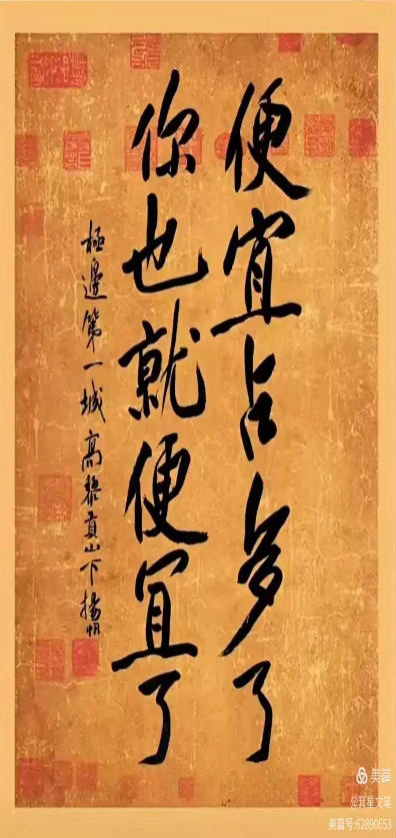 便宜占多了
你也就便宜了
極邊第一城高黎貢山下揚帆
美篇
@箕星文笔
美篇号:62890653